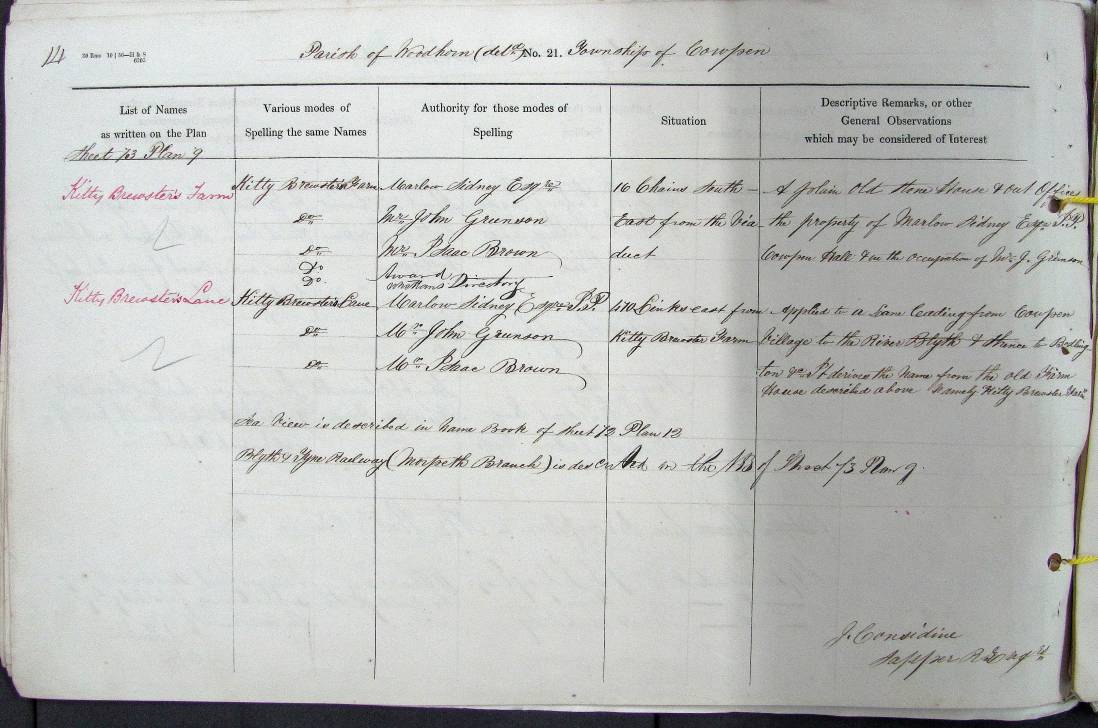 14
Parish of Woodhorn (detd) No. 21. Township of Cowpen
List of Names
as written on the Plan
Various modes of
Spelling the same Names
Authority for those modes of
Spelling
Situation
Descriptive Remarks, or other
General Observations
which may be considered of Interest
Sheet 73 Plan 9
Kitty Brewster's Farm
Kitty Brewster's Farm
Marlow Sidney Esqre
16 Chains South-
A plain Old Stone House & out Offices
Do
Mr. John Grunson
East from the Via-
the property of Marlow Sidney Esqr J.P.
Do
Mr. Isaac Brown
duct
Cowpen Hall & in the occupation of Mr. J. Grunson
Do
Award
Do
Directory
Kitty Brewster's Lane
Kitty Brewster's Lane
Marlow Sidney Esqre J.P.
470 Links east from
Applied to a Lane leading from Cowpen
Do
Mr. John Grunson
Kitty Brewster Farm
Village to the River Blyth & thence to Bedling-
Do
Mr. Isaac Brown
ton &c. It derives the Name from the old Farm
House described above Namely Kitty Brewster Farm
View is described in Name Book of Sheet 72 Plan 12
Blyth & Tyne Railway (Morpeth Branch) is described in the NB of Sheet 73 Plan 9.
J. Considine
Sapper R.E.